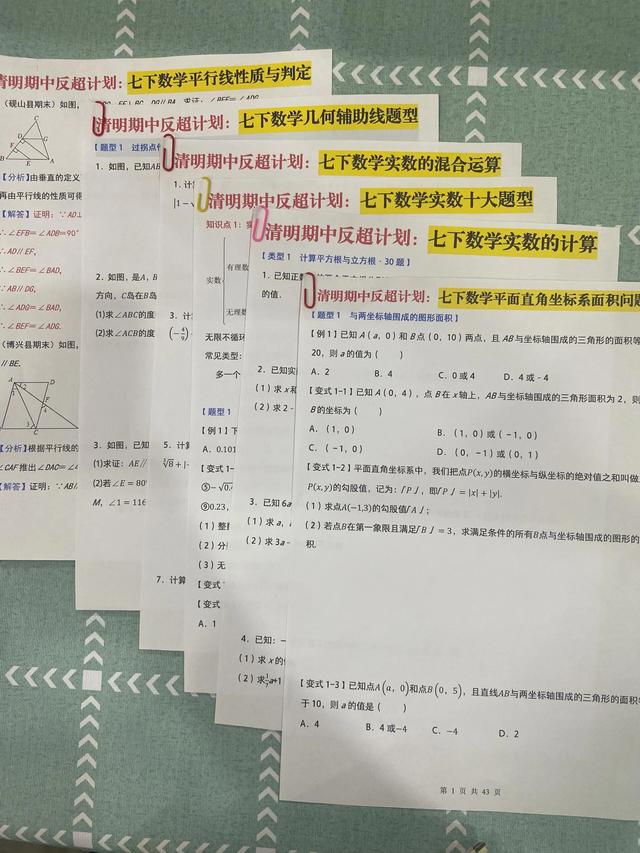 清明期中反超计划：七下数学平行线性质与判定
（砚山县期末）如图，
【分析】由垂直的定义
再由平行线的性质可得
【解答】证明：∵AD⊥
∴∠EFB＝∠ADB＝90°
∴AD∥EF，
∴∠BEF＝∠BAD，
∵AB∥DG，
∴∠ADG＝∠BAD，
∴∠BEF＝∠ADG．
（博兴县期末）如图，
∥BE．
【分析】根据平行线的
∠CAF推出∠DAC＝∠4
【解答】证明：∵AB∥
清明期中反超计划：七下数学几何辅助线题型
【题型1 过拐点作
1．如图，已知AB
2．如图，是A，B
方向，C岛在B岛
(1)求∠ABC的度
(2)求∠ACB的度
3．如图，已知
(1)求证：AE∥
(2)若∠E＝80°
M，∠1＝116
清明期中反超计划：七下数学实数的混合运算
1．计
3．计
5．计算
7．计算
清明期中反超计划：七下数学实数十大题型
知识点1：实
实数
有理数
无理数
无限不循环
常见类型：
多一个
【题型1
【例1】下
A．0.101
【变式1-
⑨0.23，
（1）整数
（2）分
（3）无
【变式
【变式
A．1
清明期中反超计划：七下数学实数的计算
【类型1 计算平方根与立方根·30题】
1．已知正数
的值．
2．已知实
（1）求x和
（2）求2－
3．已知6a
（1）求a，
（2）求3a－
4．已知：－
（1）求x的值
清明期中反超计划：七下数学平面直角坐标系面积问题
【题型1 与两坐标轴围成的图形面积】
【例1】已知A（a，0）和B点（0，10）两点，且AB与坐标轴围成的三角形的面积等
20，则a的值为（ ）
A．2 B．4 C．0或4 D．4或－4
【变式1-1】已知A（0，4），点B在x轴上，AB与坐标轴围成的三角形面积为2，则
B的坐标为（ ）
A．（1，0） B．（1，0）或（－1，0）
C．（－1，0） D．（0，－1）或（0，1）
【变式1-2】平面直角坐标系中，我们把点P(x,y)的横坐标与纵坐标的绝对值之和叫做
P(x,y)的勾股值，记为：「P」，即「P」＝|x|＋|y|.
（1）求点A(－1,3)的勾股值「A」；
（2）若点B在第一象限且满足「B」＝3，求满足条件的所有B点与坐标轴围成的图形的
积．
【变式1-3】已知点A（a，0）和点B（0，5），且直线AB与两坐标轴围成的三角形的面积等
于10，则a的值是（ ）
A．4 B．4或－4 C．－4 D．2
第 1 页 共 43 页